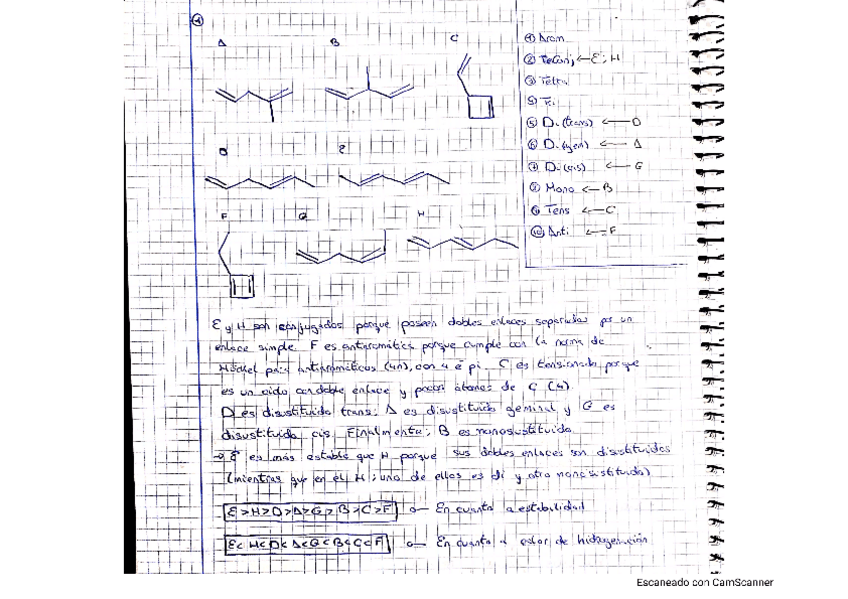 4
A B C
D E
F G H
① Arom.
② Tecon; ← E; H
③ Tetra
⑤ D. (trans) ← D
⑥ D. (gem) ← A
⑦ D. (cis) ← G
Mono ← B
⑨ Tens ← C
⑩ Anti ← F
E y H son conjugados porque poseen dobles enlaces separados por un
enlace simple. F es antiaromático porque cumple con la norma de
Hückel para antiaromáticos (4n), con 4 e pi. C es tensionado porque
es un ciclo con doble enlace y pocos átomos de C (4).
D es disustituido trans; A es disustituido geminal y G es
disustituido cis. Finalmente; B es monosustituido.
→ E es más estable que H porque sus dobles enlaces son disustituidos
(mientras que en el H; uno de ellos es di y otro monosustituido)
E > H > D > A > G > B > C > F En cuanto a estabilidad
E < H < D < A < G < B < C < F En cuanto a calor de hidrogenación
Escaneado con CamScanner